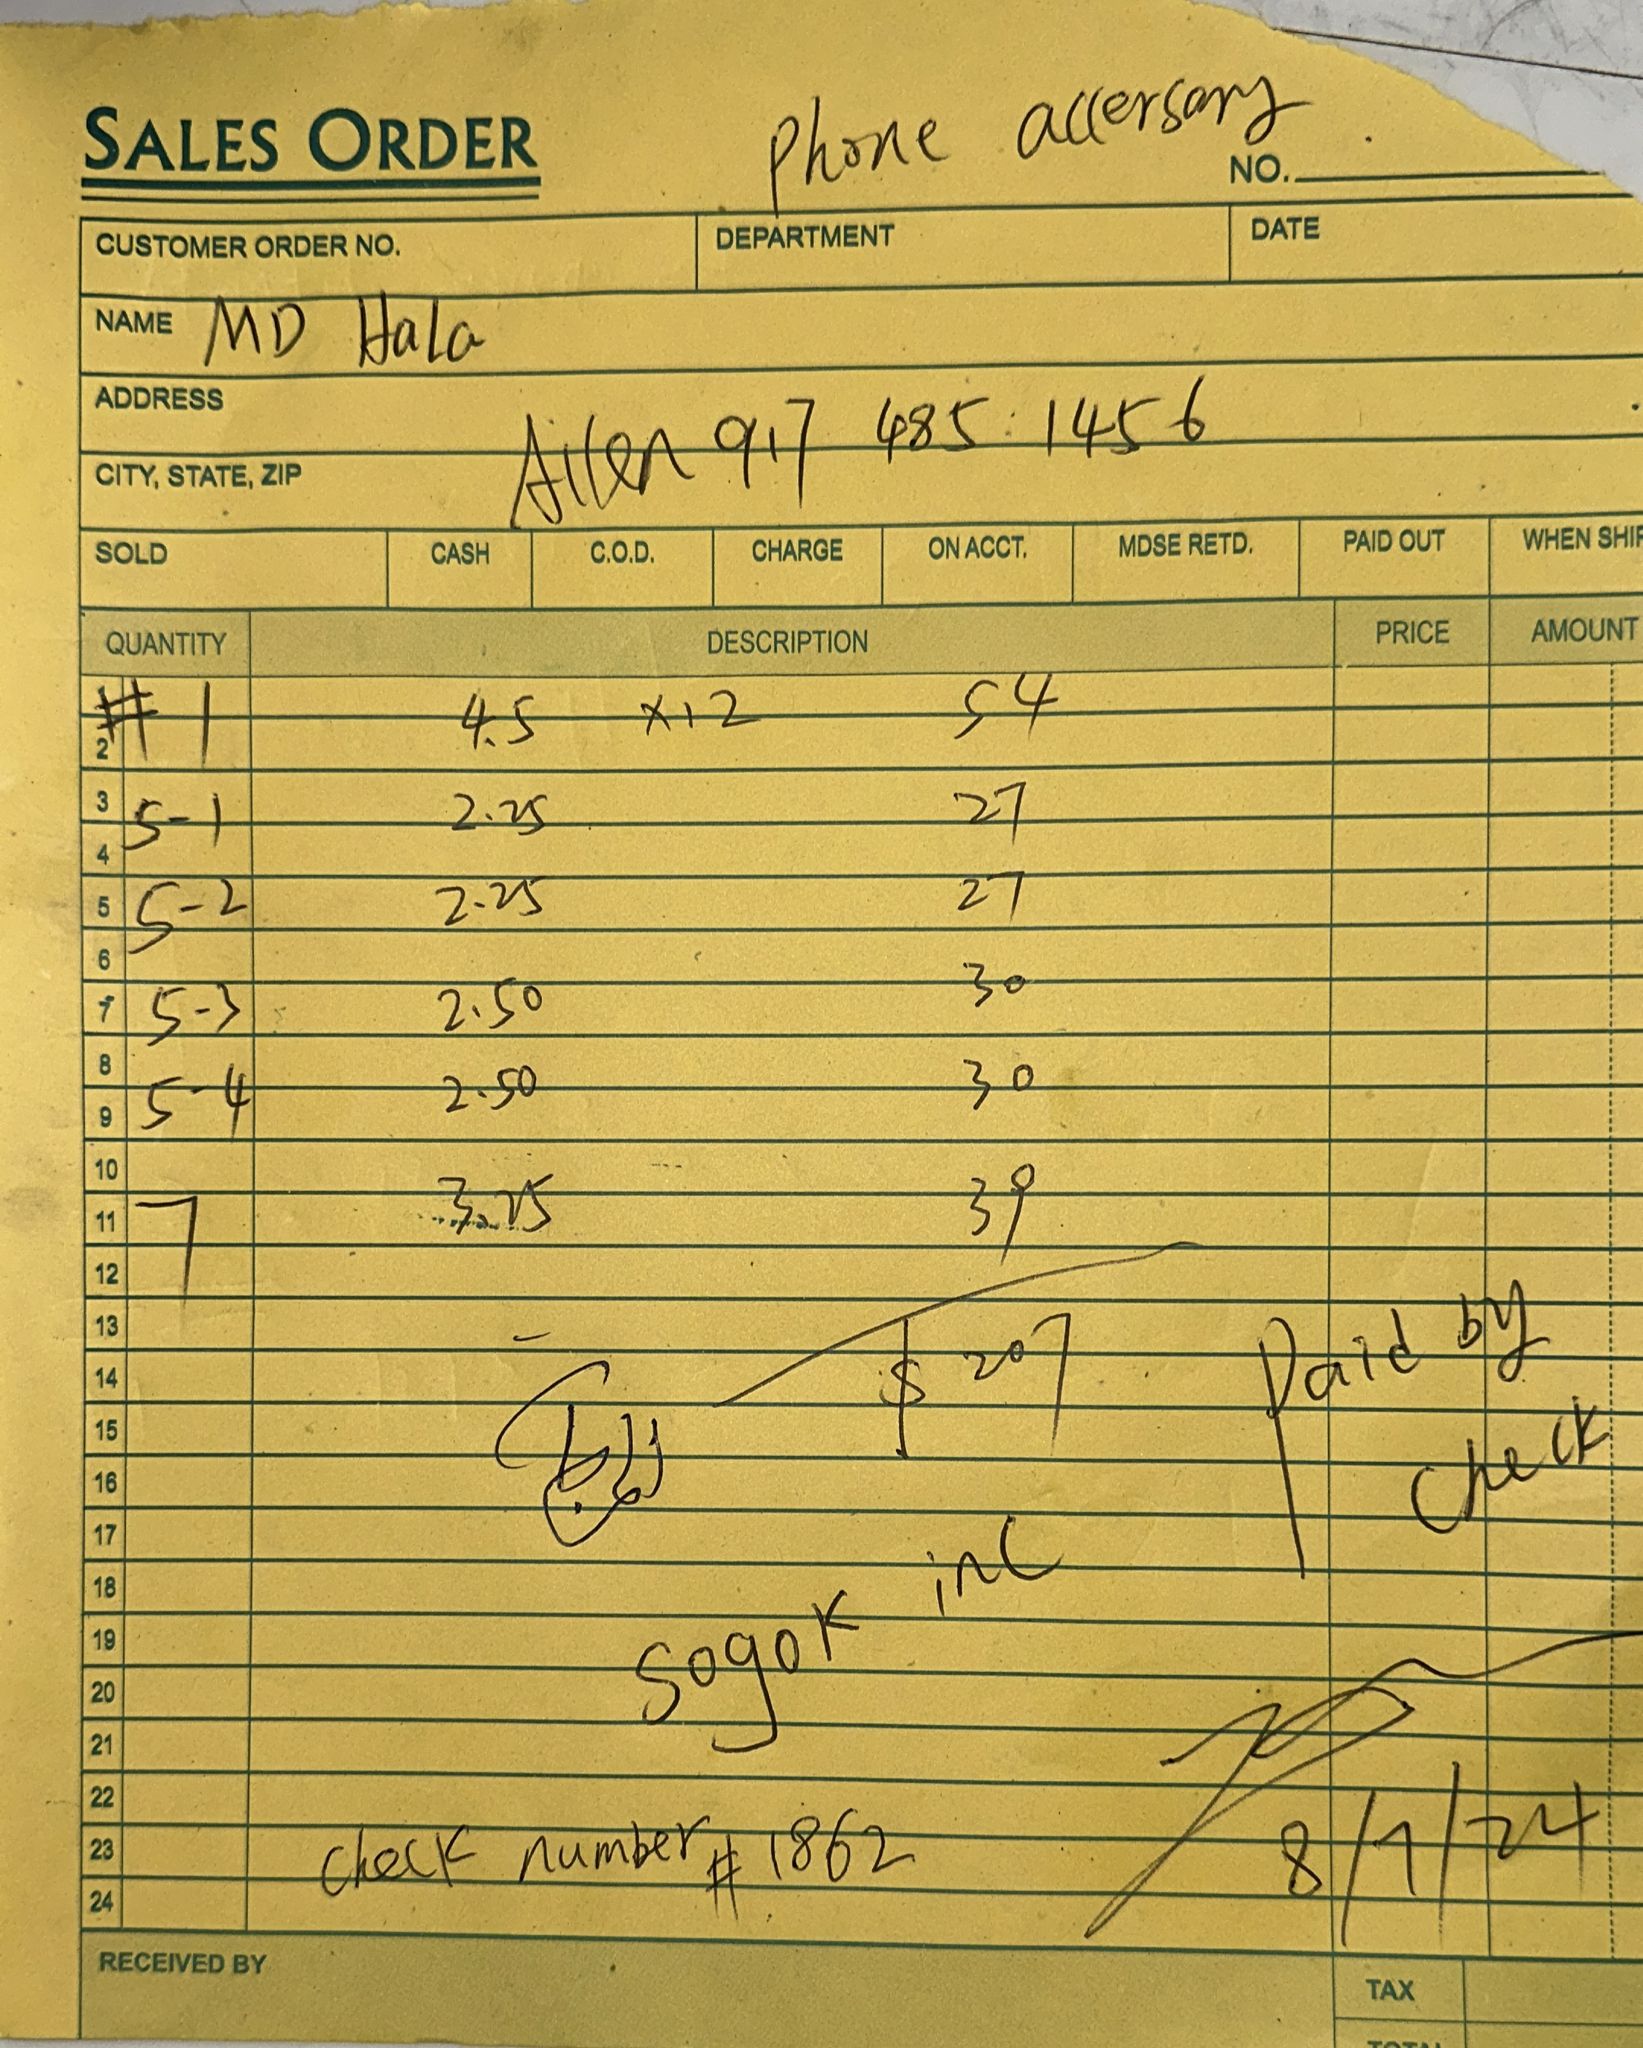 phone accersary
SALES ORDER
NO.
CUSTOMER ORDER NO. DEPARTMENT DATE
NAME MD Hala
ADDRESS
Aillen 917 485 1456
CITY, STATE, ZIP
SOLD CASH C.O.D. CHARGE ON ACCT. MDSE RETD. PAID OUT WHEN SHIP
QUANTITY DESCRIPTION PRICE AMOUNT
# 1 4.5 x12 54
2
3 5-1 2.25 27
4
5 5-2 2.25 27
6
7 5-3 2.50 30
8
9 5-4 2.50 30
10
11 7 3.25 39
12
13
14 $ 207 Paid by
15 check
16
17
18 inc
19 sogok
20
21
22
23 check number # 1862 8/7/24
24
RECEIVED BY
TAX
TOTAL